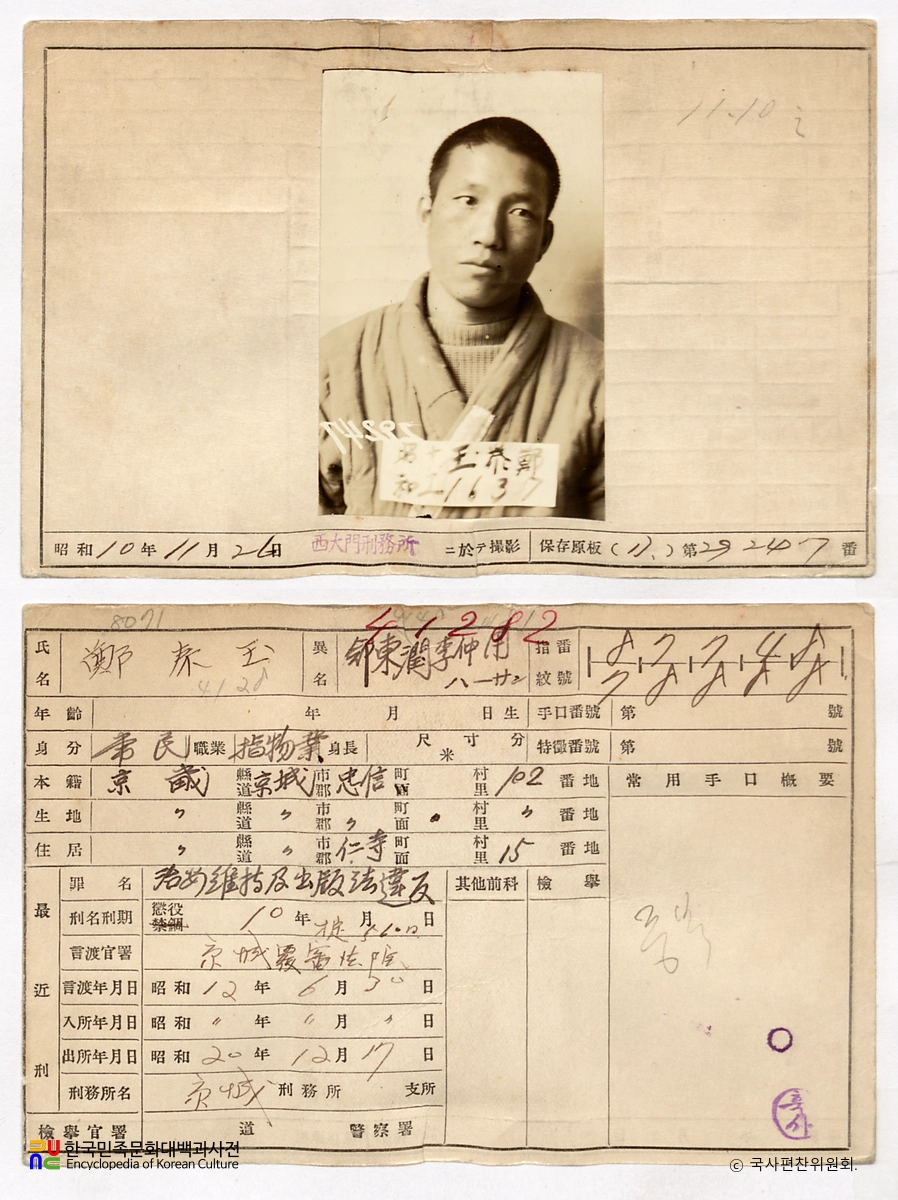 11.10
29247
鄭泰玉
1637
昭和10年11月26日 西大門刑務所 ニ於テ撮影 保存原板 第29247番
8071
41282
氏名 鄭泰玉 異名 李仲 指紋番號
4128
年齡 年 月 日生 手口番號 第 號
身分 常民 職業 指物業 身長 尺寸分 米 特徵番號 第 號
本籍 京畿 縣道 京城 市郡 忠信 町面 村里 102 番地 常用手口概要
生地 〃 縣道 〃 市郡 〃 町面 村里 〃 番地
住居 〃 縣道 〃 市郡 仁寺 町面 村里 15 番地
最近刑
罪名 治安維持及出版法違反 其他前科 檢擧
刑名刑期 懲役 禁錮 10年 月 日
言渡官署 京城覆審法院
言渡年月日 昭和12年6月30日
入所年月日 昭和〃年〃月〃日
出所年月日 昭和20年12月17日
刑務所名 京城 刑務所 支所
檢擧官署 道 警察署
한국민족문화대백과사전
Encyclopedia of Korean Culture
© 국사편찬위원회.